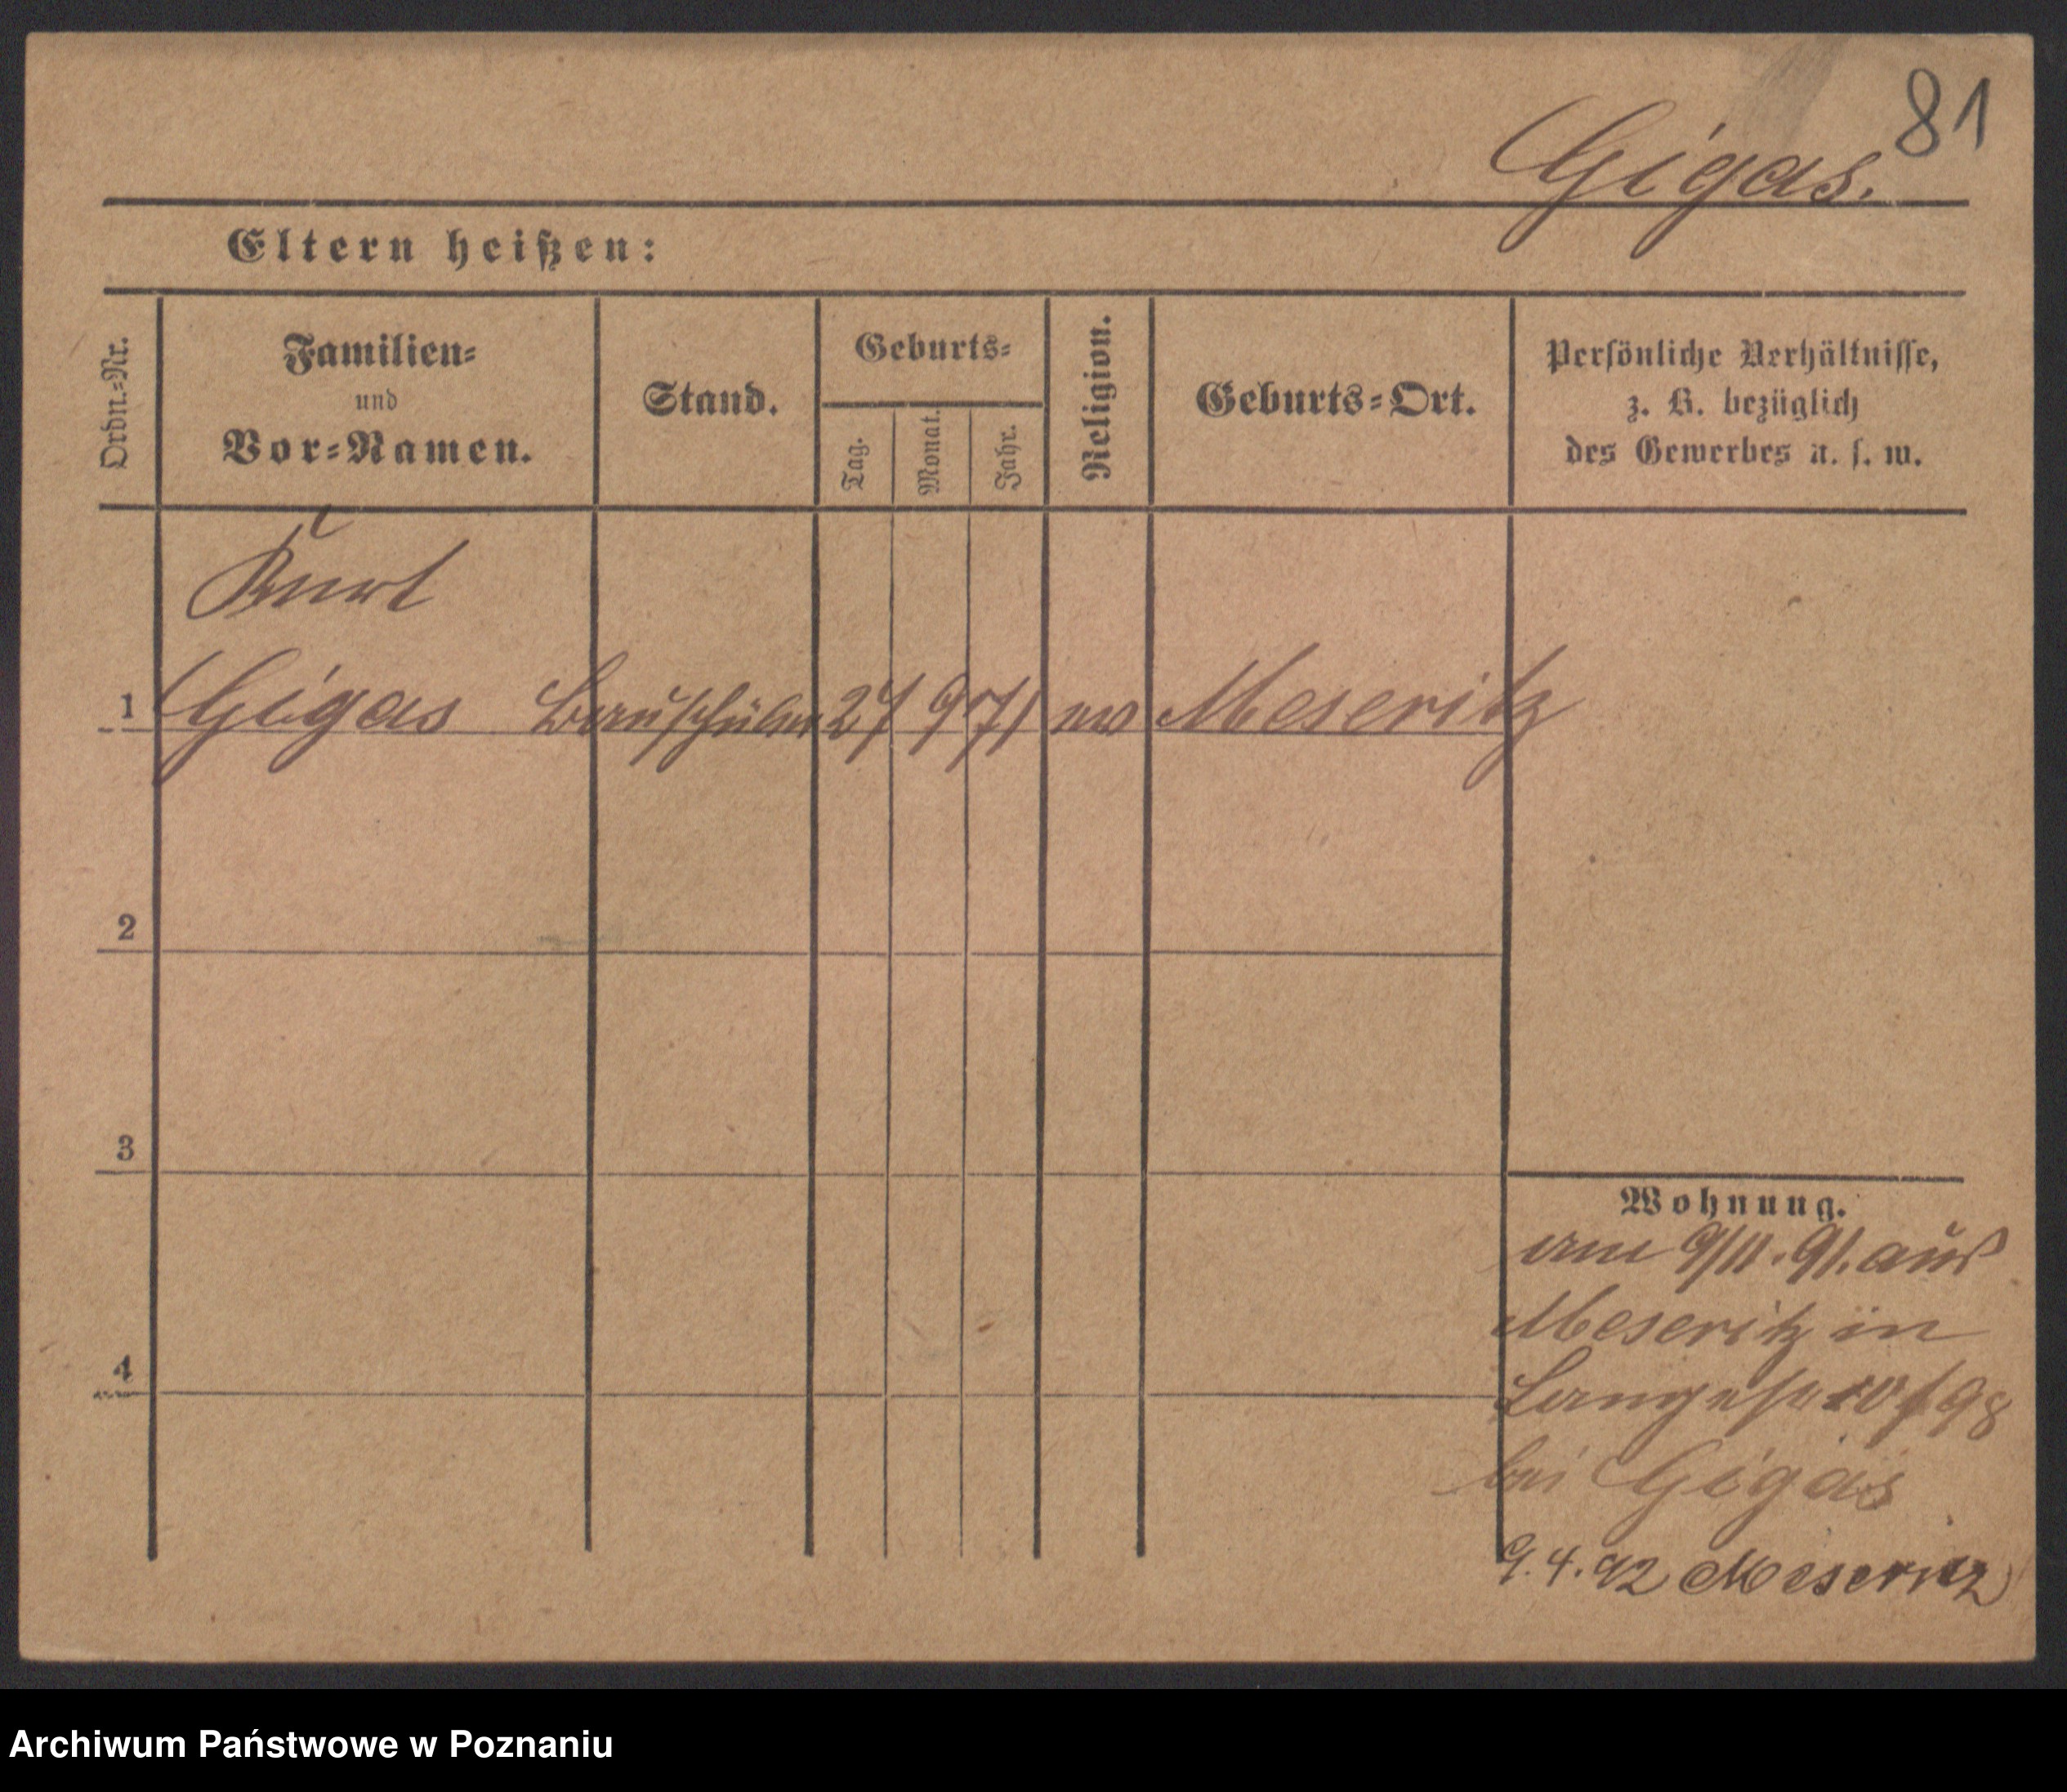 81
Gigas.
Eltern heißen:
Ordn.=Nr.
Familien=
und
Vor=Namen.
Stand.
Geburts=
Tag.
Monat.
Jahr.
Religion.
Geburts=Ort.
Persönliche Verhältnisse,
z. B. bezüglich
des Gewerbes u. s. w.
Kurt
1 Gigas Bauschüler 27 9 71 ev Meseritz
2
3
4
Wohnung.
am 9/11. 91. aus
Meseritz in
Langestr
bei Gigas
9. 4. 92 Meseritz
Archiwum Państwowe w Poznaniu